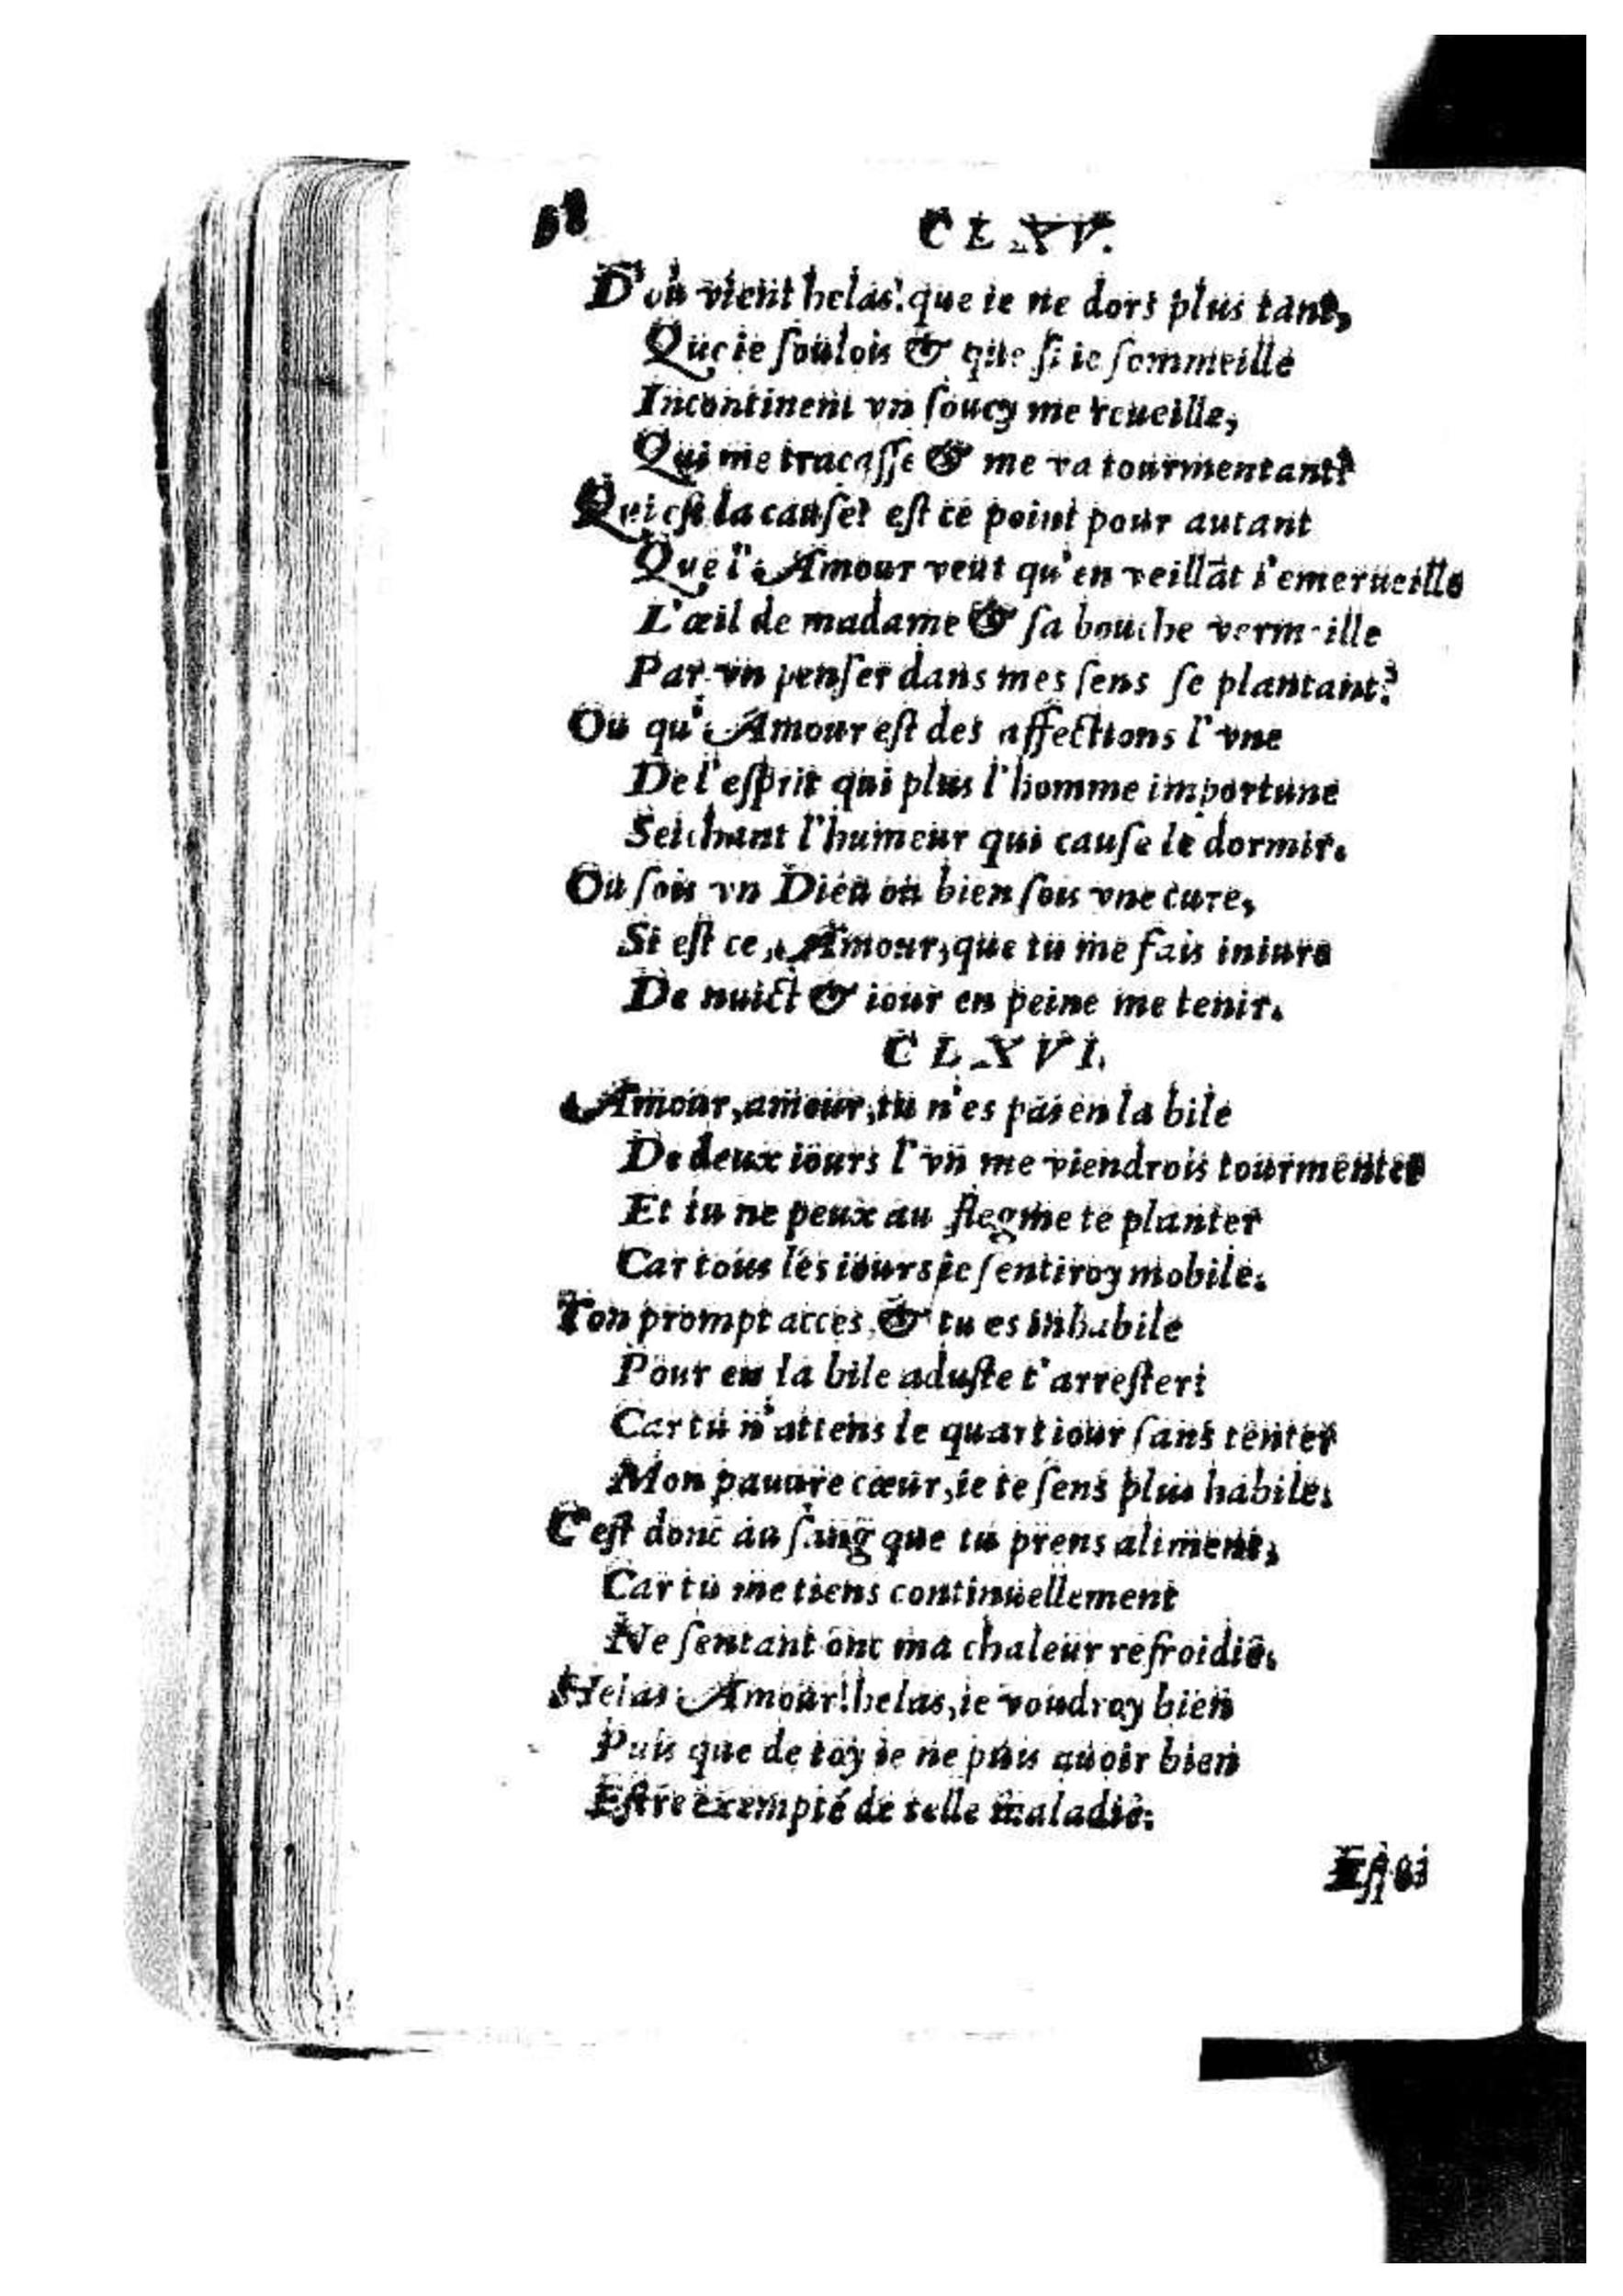 CLXV.
D'où vient helas! que ie ne dors plus tant,
Que ie ſoulois & que ſi ie ſommeille
Incontinent vn ſoucy me reueille,
Qui me tracaſſe & me va tourmentant?
Qui eſt la cauſe? eſt ce point pour autant
Que l'Amour veut qu'en veillāt i'emerueille
L'œil de madame & ſa bouche vermeille
Par vn penſer dans mes ſens ſe plantant?
Ou qu'Amour eſt des affections l'vne
De l'eſprit qui plus l'homme importune
Seichant l'humeur qui cauſe le dormir.
Ou ſois vn Dieu ou bien ſois vne cure,
Si eſt ce, Amour, que tu me fais iniure
De nuict & iour en peine me tenir.
CLXVI.
Amour, amour, tu n'es pas en la bile
De deux iours l'vn me viendrois tourmenter
Et tu ne peux au flegme te planter
Car tous les iours ie ſentiroy mobile.
Ton prompt acces, & tu es inhabile
Pour en la bile aduſte t'arreſter:
Car tu n'attens le quart iour ſans tenter
Mon pauure cœur, ie te ſens plus habile.
C'eſt donc au ſang que tu prens aliment,
Car tu me tiens continuellement
Ne ſentant onc ma chaleur refroidie.
Helas Amour! helas, ie voudroy bien
Puis que de toy ie ne puis auoir bien
Eſtre exempté de telle maladie.